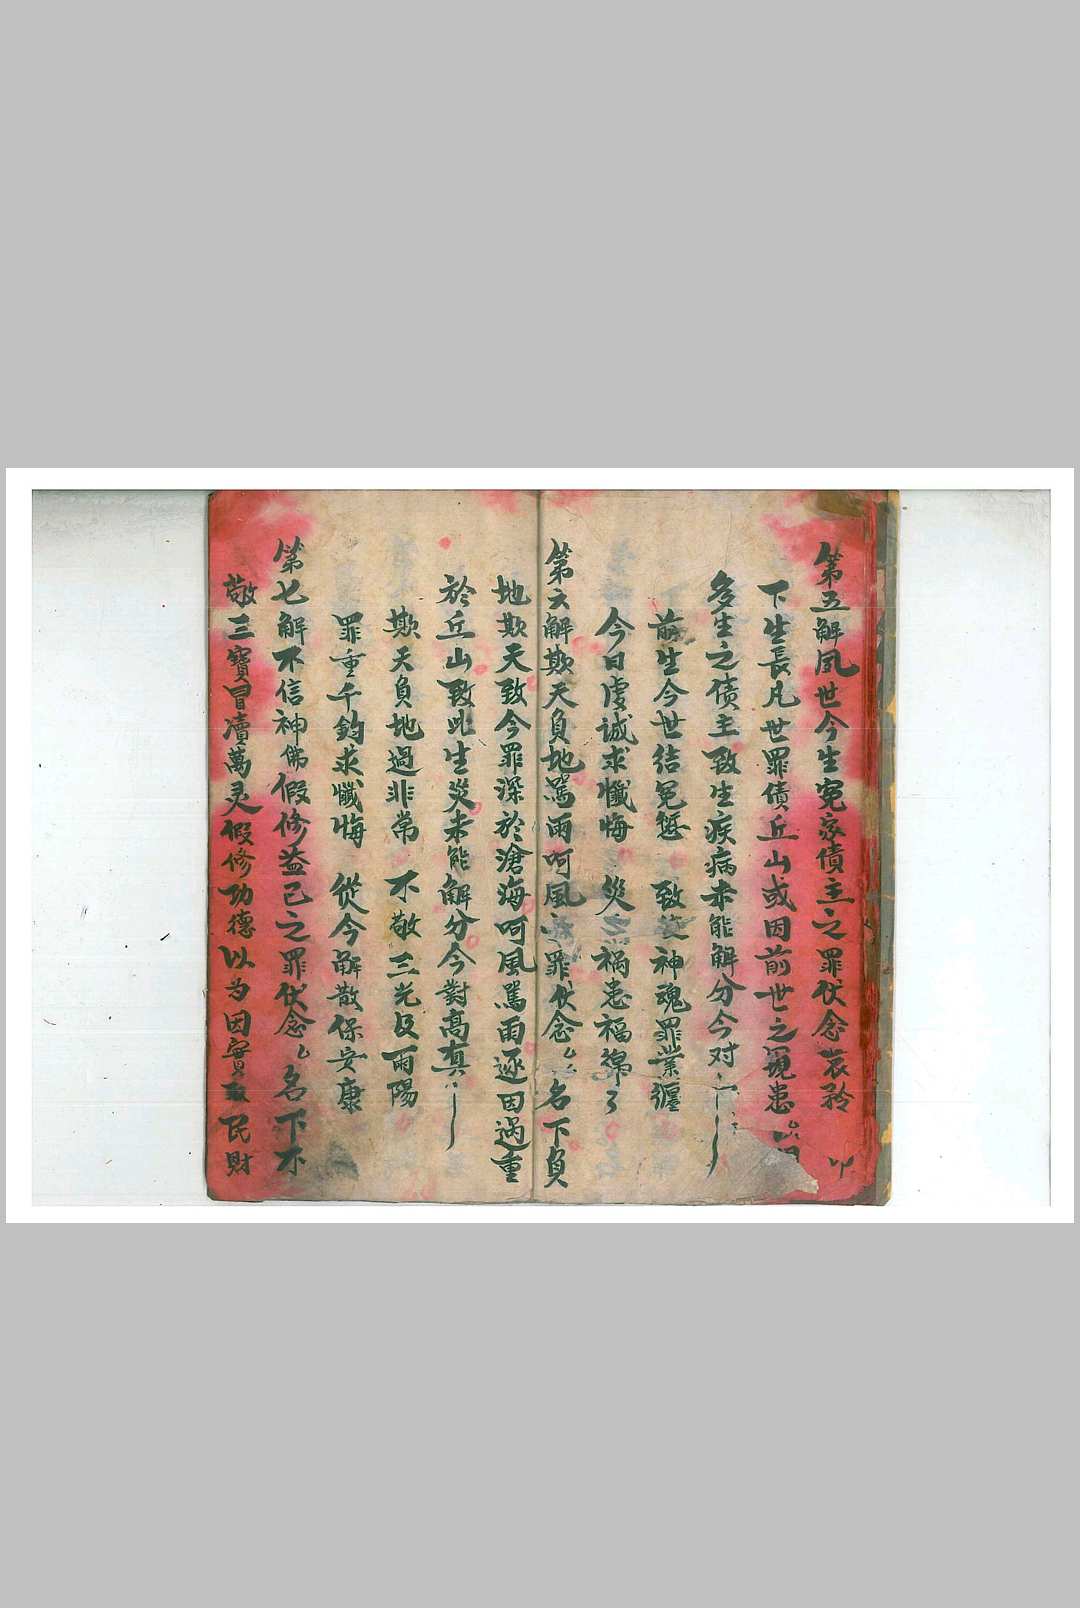 第五解夙世今生寃家債主之罪伏念哀矜
下生長凡世罪債丘山或因前世之寃患
多生之債主致生疾病未能解分今对
前生今世结寃愆 致使神魂罪業纏
今日虔誠求懺悔 災 禍患福綿
第六解欺天負地罵雨呵風之罪伏念 名下負
地欺天致今罪深於滄海呵風罵雨逐因過重
於丘山致此生災未能解分今對髙真
欺天負地過非常 不敬三光及雨陽
罪重千鈞求懺悔 從今解散保安康
第七解不信神佛假修益己之罪伏念 名下不
敬三寶冒瀆萬灵假修功德以为因實 民財